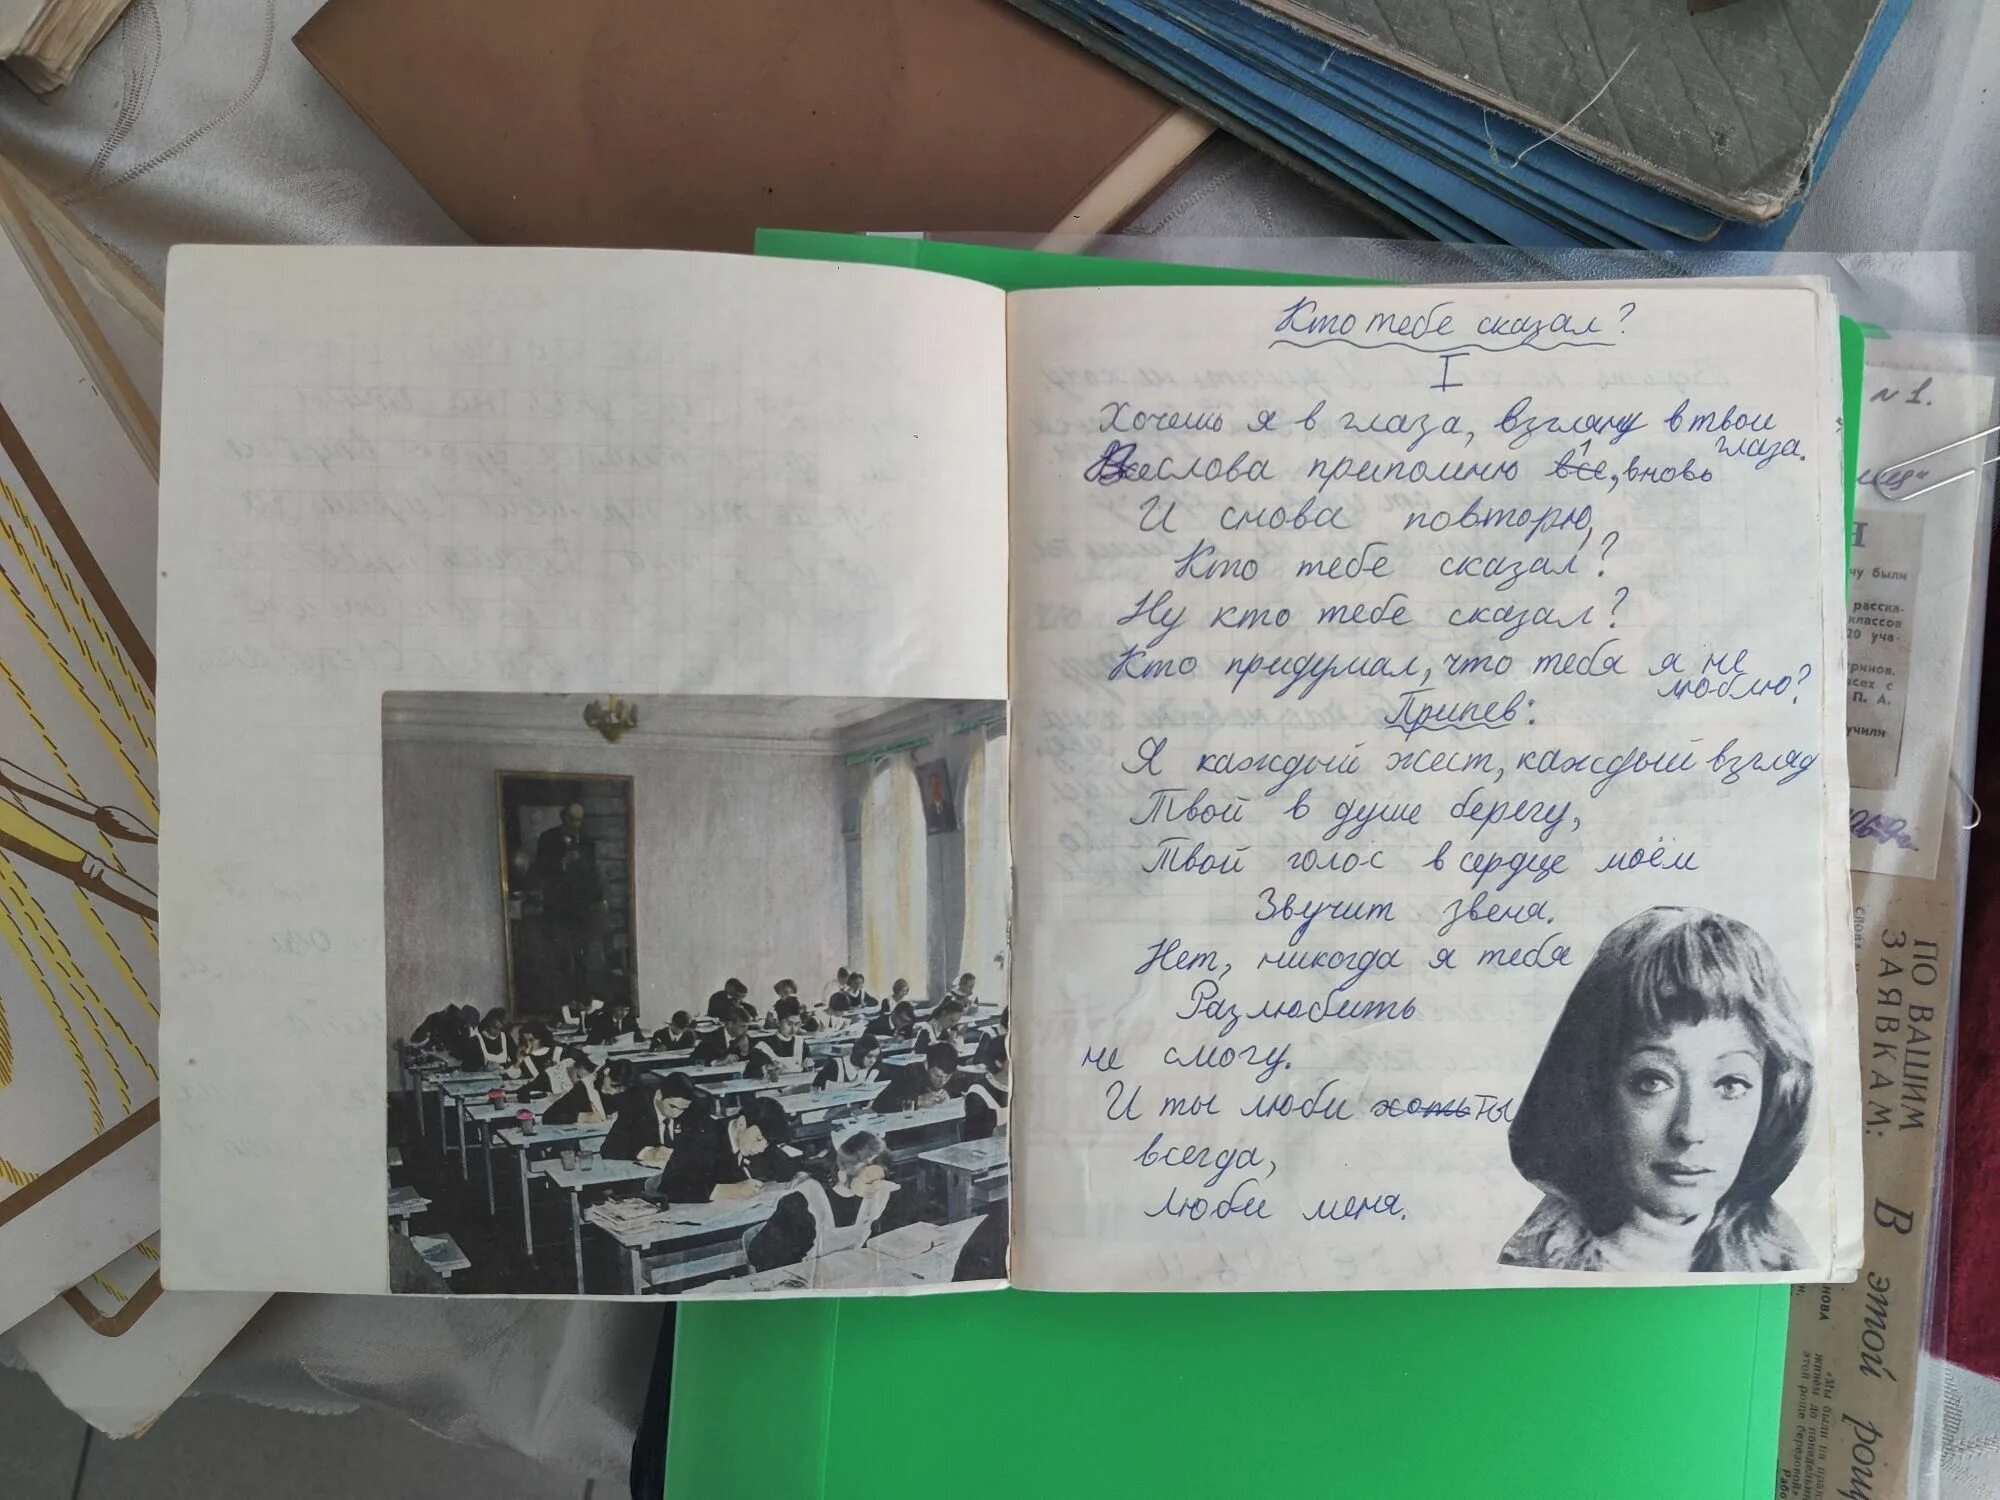 Кто тебе сказал?
I
Хочешь я в глаза, взгляну в твои
глаза.
Все слова припомню все, вновь
И снова повторю,
Кто тебе сказал?
Ну кто тебе сказал?
Кто придумал, что тебя я не
люблю?
Припев:
Я каждый жест, каждый взгляд
Твой в душе берегу,
Твой голос в сердце моём
Звучит звеня.
Нет, никогда я тебя
Разлюбить
не смогу.
И ты люби хоть ты
всегда,
люби меня.
N 1.
чу были
расска-
классов
20 уча-
П. А.
учили
ПО ВАШИМ
ЗАЯВКАМ:
В этой рощ